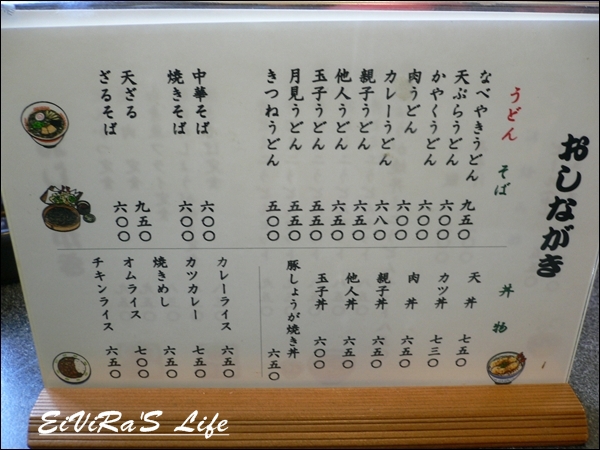 おしながき
うどん そば
なべやきうどん 九五〇
天ぷらうどん 六〇〇
かやくうどん 六〇〇
肉うどん 六〇〇
カレーうどん 六八〇
親子うどん 六五〇
他人うどん 六五〇
玉子うどん 五五〇
月見うどん 五五〇
きつねうどん 五〇〇
中華そば 六〇〇
焼きそば 六〇〇
天ざる 九五〇
ざるそば 六〇〇
丼物
天丼 七五〇
カツ丼 七三〇
肉丼 六五〇
親子丼 六五〇
他人丼 六五〇
玉子丼 六〇〇
豚しょうが焼き丼 六五〇
カレーライス 六五〇
カツカレー 七五〇
焼きめし 六五〇
オムライス 七〇〇
チキンライス 六五〇
EiViRa'S Life